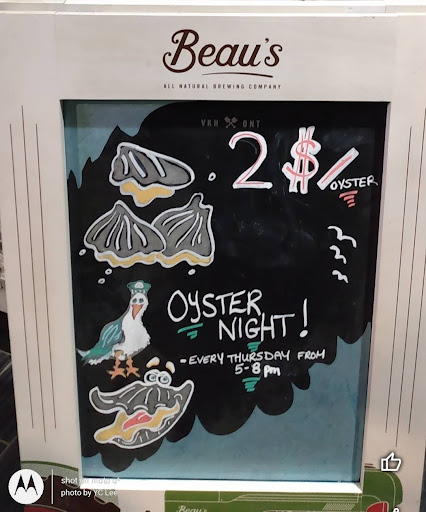 Beau's
ALL NATURAL BREWING COMPANY
VKH ONT
2 $/
OYSTER
OYSTER
NIGHT!
- EVERY THURSDAY FROM
5-8 pm
Beau's
shot on
photo by YC Lee